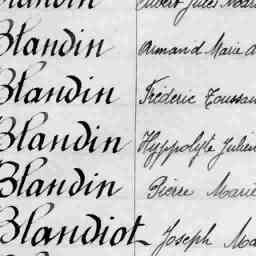 Blandin Armand Marie
Blandin Fréderic Toussain
Blandin Hyppolyte Julien
Blandin Pierre Marie
Blandiot Joseph Ma